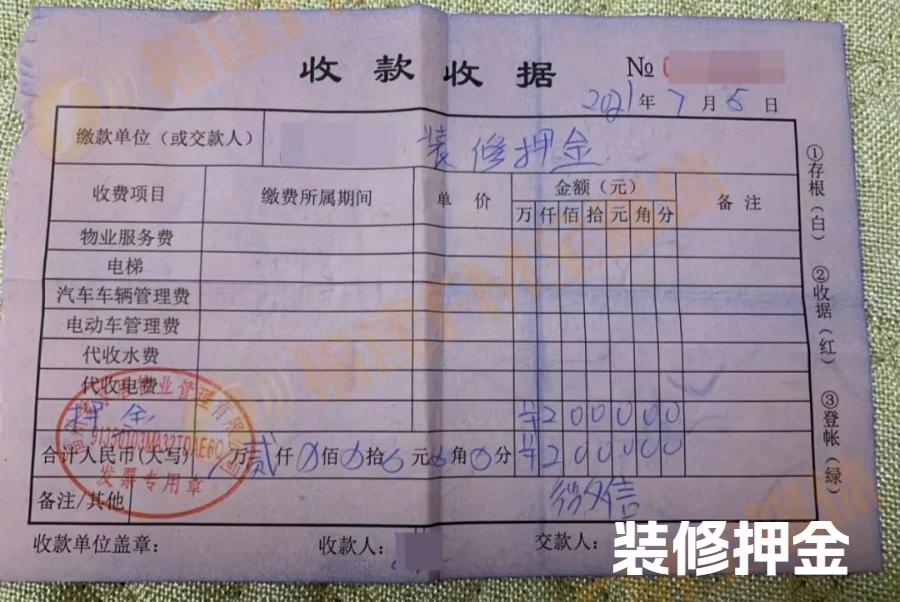 收款收据 №
2021年7月5日
缴款单位（或交款人） 装修押金
收费项目 缴费所属期间 单价 金额（元） 备注
万 仟 佰 拾 元 角 分
物业服务费
电梯
汽车车辆管理费
电动车管理费
代收水费
代收电费
押金 ¥200000
合计人民币(大写) 万贰仟0佰0拾0元0角0分 ¥200000
备注/其他
收款单位盖章： 收款人： 交款人：
①存根（白） ②收据（红） ③登帐（绿）
业管理有限
发票专用章
装修押金